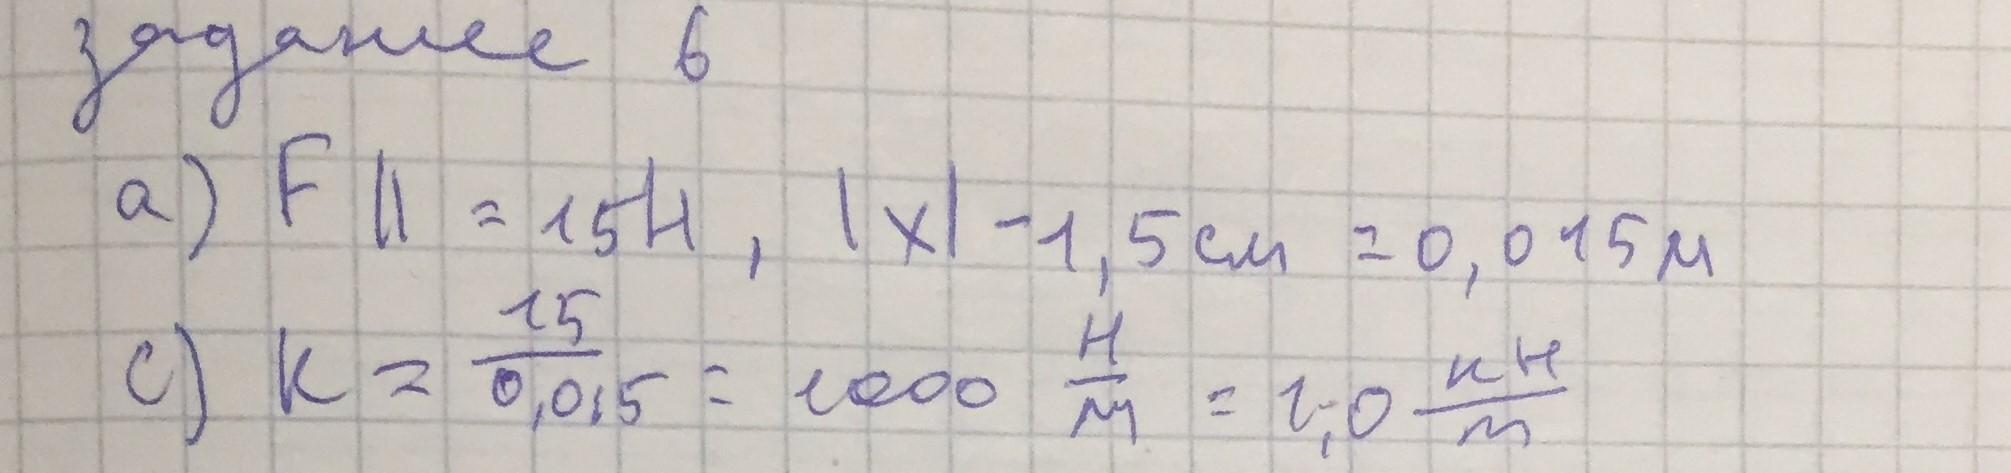 задание 6
а) F || = 15Н, |x| - 1,5см = 0,015м
с) k = 15/0,015 = 1000 Н/м = 1,0 кН/м